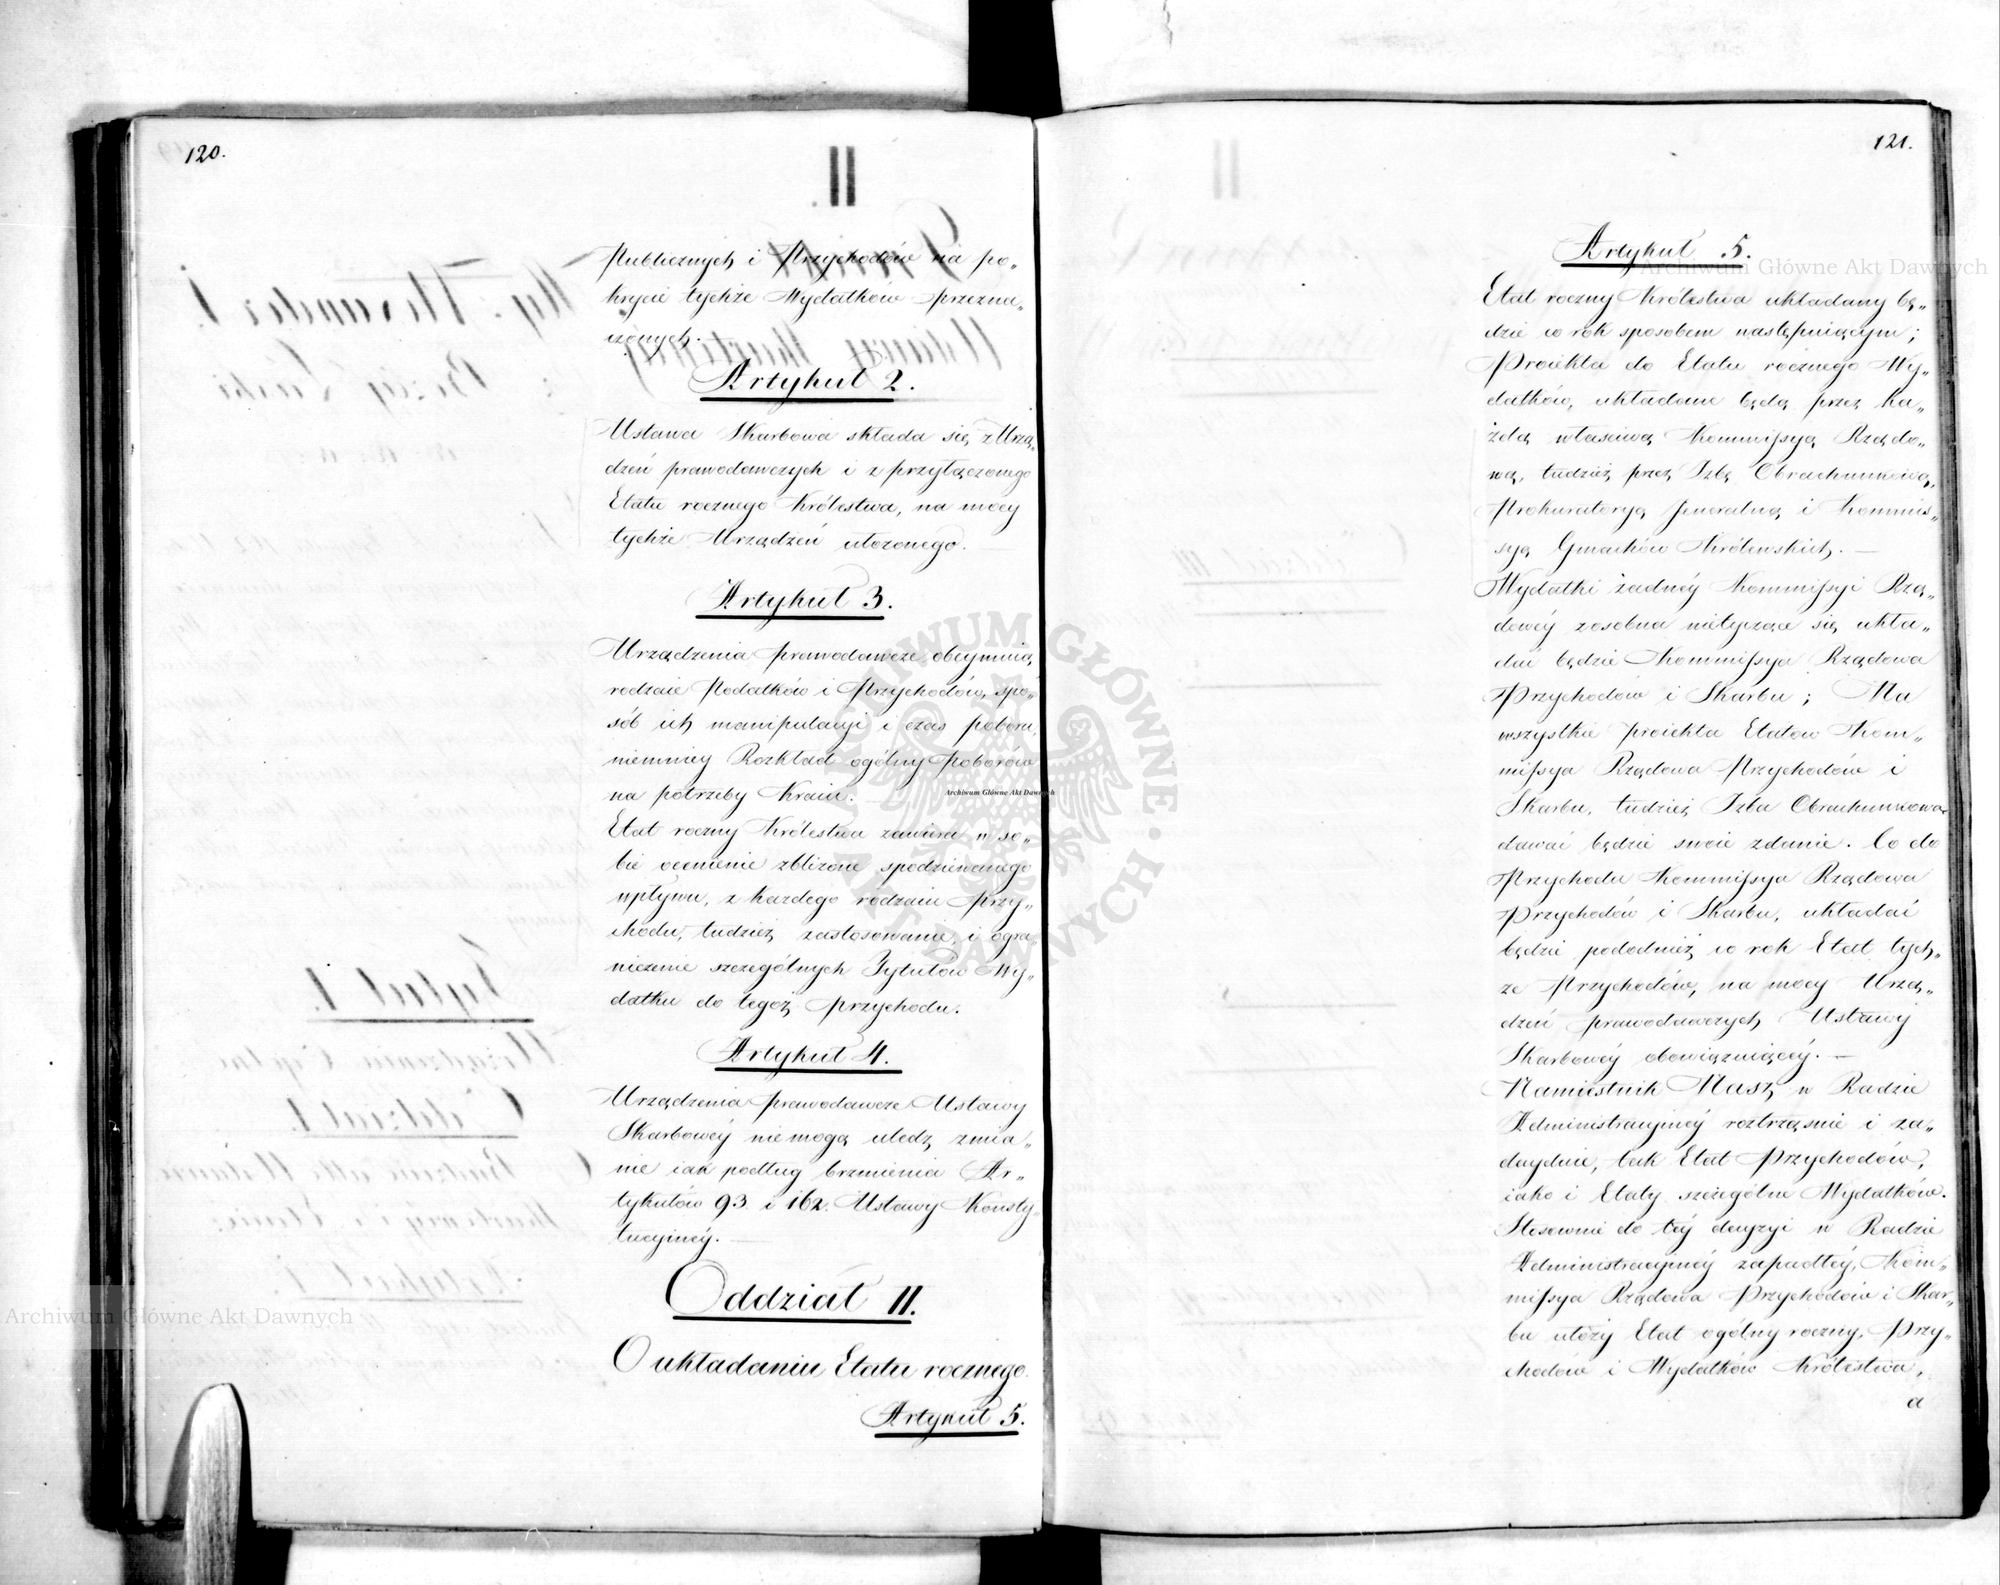 120.
II.
Publicznych i Przychodów na po„
krycie tychże Wydatków przezna„
czonych.
Artykuł 2.
Ustawa Skarbowa składa się z Urzą„
dzeń prawodawczych i z przyłączonego
Etatu rocznego Królestwa, na mocy
tychże Urządzeń ułożonego. —
Artykuł 3.
Urządzenia prawodawcze obeymuią
rodzaie Podatków i Przychodów, spo„
sób ich manipulacyi i czas poboru,
niemniey Rozkład ogólny Poborów
na potrzeby Kraiu. —
Etat roczny Królestwa zawiera w so„
bie ocenienie zbliżone spodziewanego
wpływu, z każdego rodzaiu Przy„
chodu, tudzież zastosowanie i ogra„
niczenie szczególnych Tytułów Wy„
datku do tegoż przychodu.
Artykuł 4.
Urządzenia prawodawcze Ustawy
Skarbowéy nie mogą uledz zmia„
nie iak podług brzmienia Ar„
tykułów 93 i 162. Ustawy Konsty„
tucyinéy. —
Oddział II.
O układaniu Etatu rocznego.
Artykuł 5.
121.
Artykuł 5.
Etat roczny Królestwa układany bę„
dzie co rok sposobem następuiącym;
Proiekta do Etatu rocznego Wy„
datków, układane będą przez ka„
żdą właściwą Kommissyą Rządo„
wą, tudzież przez Izbę Obrachunkową,
Prokuratoryą Jeneralną i Kommis„
syą Gmachów Królewskich. —
Wydatki żadnéy Kommissyi Rzą„
dowéy zosobna nietyczące się ukła„
dać będzie Kommissya Rządowa
Przychodów i Skarbu; Na
wszystkie proiekta Etatów Kom„
missya Rządowa Przychodów i
Skarbu, tudzież Izba Obrachunkowa
dawać będzie swoie zdanie. Co do
Przychodu Kommissya Rządowa
Przychodów i Skarbu, układać
będzie podobnież co rok Etat tych„
że Przychodów, na mocy Urzą„
dzeń prawodawczych Ustawy
Skarbowéy obowiązuiącéy. —
Namiestnik Nasz w Radzie
Administracyinéy roztrząśnie i za„
decyduie, tak Etat Przychodów,
iako i Etaty szczególne Wydatków.
Stosownie do téy decyzyi w Radzie
Administracyinéy zapadłéy, Kom„
missya Rządowa Przychodów i Skar„
bu ułoży Etat ogólny roczny, Przy„
chodów i Wydatków Królestwa,
a
Archiwum Główne Akt Dawnych
Archiwum Główne Akt Dawnych
Archiwum Główne Akt Dawnych
ARCHIWUM GŁÓWNE AKT DAWNYCH